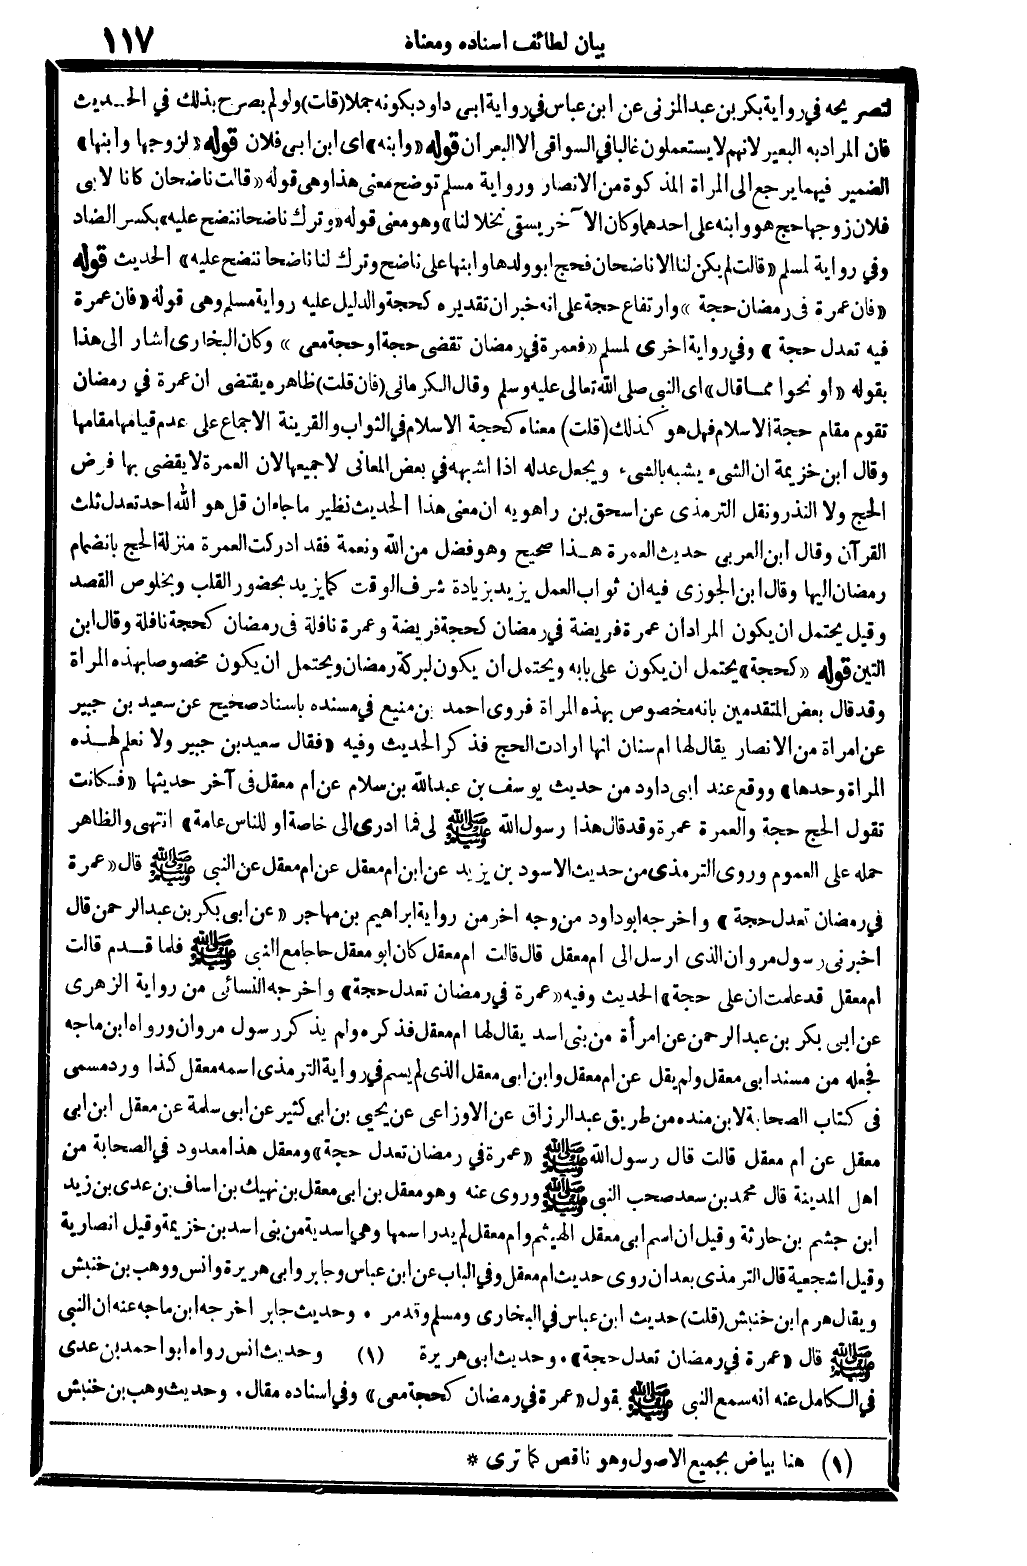 بيان لطائف اسناده ومعناه ١١٧
لتصريحه في رواية بكر بن عبد المزنى عن ابن عباس في رواية ابى داود بكونه جملا (قات) ولو لم يصرح بذلك في الحديث
فان المراد به البعير لانهم لا يستعملون غالبا في السواقى الا البعران قوله «وابنه» اى ابن ابى فلان قوله «لزوجها وابنها»
الضمير فيهما يرجع الى المرأة المذكورة من الانصار ورواية مسلم توضح معنى هذا وهى قوله «قالت ناضحان كانا لابى
فلان زوجها حج هو وابنه على احدهما وكان الآخر يستقى نخلا لنا» وهو معنى قوله «وترك ناضحا ننضح عليه» بكسر الضاد
وفي رواية لمسلم «قالت لم يكن لنا الا ناضحان فحج ابو ولدها وابنها على ناضح وترك لنا ناضحا ننضح عليه» الحديث قوله
«فان عمرة فى رمضان حجة» وارتفاع حجة على انه خبر ان تقديره كحجة والدليل عليه رواية مسلم وهى قوله «فان عمرة
فيه تعدل حجة» وفي رواية اخرى لمسلم «فعمرة في رمضان تقضى حجة او حجة معى» وكان البخارى اشار الى هذا
بقوله «او نحوا مما قال» اى النبي صلى الله تعالى عليه وسلم وقال الكرمانى (فان قلت) ظاهره يقتضى ان عمرة في رمضان
تقوم مقام حجة الاسلام فهل هو كذلك (قلت) معناه كحجة الاسلام في الثواب والقرينة الاجماع على عدم قيامها مقامها
وقال ابن خزيمة ان الشىء يشبه بالشىء ويجعل عدله اذا اشبهه في بعض المعانى لا جميعها لان العمرة لا يقضى بها فرض
الحج ولا النذر ونقل الترمذى عن اسحق بن راهويه ان معنى هذا الحديث نظير ما جاء ان قل هو الله احد تعدل ثلث
القرآن وقال ابن العربى حديث العمرة هذا صحيح وهو فضل من الله ونعمة فقد ادركت العمرة منزلة الحج بانضمام
رمضان اليها وقال ابن الجوزى فيه ان ثواب العمل يزيد بزيادة شرف الوقت كما يزيد بحضور القلب وبخلوص القصد
وقيل يحتمل ان يكون المراد ان عمرة فريضة في رمضان كحجة فريضة وعمرة نافلة فى رمضان كحجة نافلة وقال ابن
التين قوله «كحجة» يحتمل ان يكون على بابه ويحتمل ان يكون لبركة رمضان ويحتمل ان يكون مخصوصا بهذه المرأة
وقد قال بعض المتقدمين بانه مخصوص بهذه المرأة فروى احمد بن منيع في مسنده باسناد صحيح عن سعيد بن جبير
عن امرأة من الانصار يقال لها ام سنان انها ارادت الحج فذكر الحديث وفيه «فقال سعيد بن جبير ولا نعلم لهذه
المرأة وحدها» ووقع عند ابى داود من حديث يوسف بن عبد الله بن سلام عن ام معقل فى آخر حديثها «فكانت
تقول الحج حجة والعمرة عمرة وقد قال هذا رسول الله ﷺ لى فما ادرى الى خاصة او للناس عامة» انتهى والظاهر
حمله على العموم وروى الترمذى من حديث الاسود بن يزيد عن ابن ام معقل عن ام معقل عن النبى ﷺ قال «عمرة
في رمضان تعدل حجة» واخرجه ابو داود من وجه اخر من رواية ابراهيم بن مهاجر «عن ابى بكر بن عبد الرحمن قال
أخبرنى رسول مروان الذى ارسل الى ام معقل قال قالت ام معقل كان ابو معقل حاجا مع النبى ﷺ فلما قدم قالت
ام معقل قد علمت ان على حجة» الحديث وفيه «عمرة في رمضان تعدل حجة» واخرجه النسائى من رواية الزهرى
عن ابى بكر بن عبد الرحمن عن امرأة من بنى اسد يقال لها ام معقل فذكره ولم يذكر رسول مروان ورواه ابن ماجه
فجعله من مسند ابى معقل ولم يقل عن ام معقل وابن ابى معقل الذى لم يسم في رواية الترمذى اسمه معقل كذا ورد مسمى
فى كتاب الصحابة لابن منده من طريق عبد الرزاق عن الاوزاعى عن يحيى بن ابى كثير عن ابى سلمة عن معقل ابن ابى
معقل عن ام معقل قالت قال رسول الله ﷺ «عمرة في رمضان تعدل حجة» ومعقل هذا معدود في الصحابة من
اهل المدينة قال محمد بن سعد صحب النبى ﷺ وروى عنه وهو معقل بن ابى معقل بن نهيك بن اساف بن عدى بن زيد
ابن جشم بن حارثة وقيل ان اسم ابى معقل الهيثم وام معقل لم يدر اسمها وهى اسدية من بنى اسد بن خزيمة وقيل انصارية
وقيل اشجعية قال الترمذى بعد ان روى حديث ام معقل وفي الباب عن ابن عباس وجابر وابى هريرة وانس ووهب بن خنبش
ويقال هرم ابن خنبش (قلت) حديث ابن عباس في البخارى ومسلم وقد مر • وحديث جابر اخرجه ابن ماجه عنه ان النبى
ﷺ قال «عمرة في رمضان تعدل حجة» • وحديث ابى هريرة (١) وحديث انس رواه ابو احمد بن عدى
في الكامل عنه انه سمع النبى ﷺ يقول «عمرة في رمضان كحجة معى» وفي اسناده مقال • وحديث وهب بن خنبش
(١) هنا بياض بجميع الاصول وهو ناقص كما ترى *